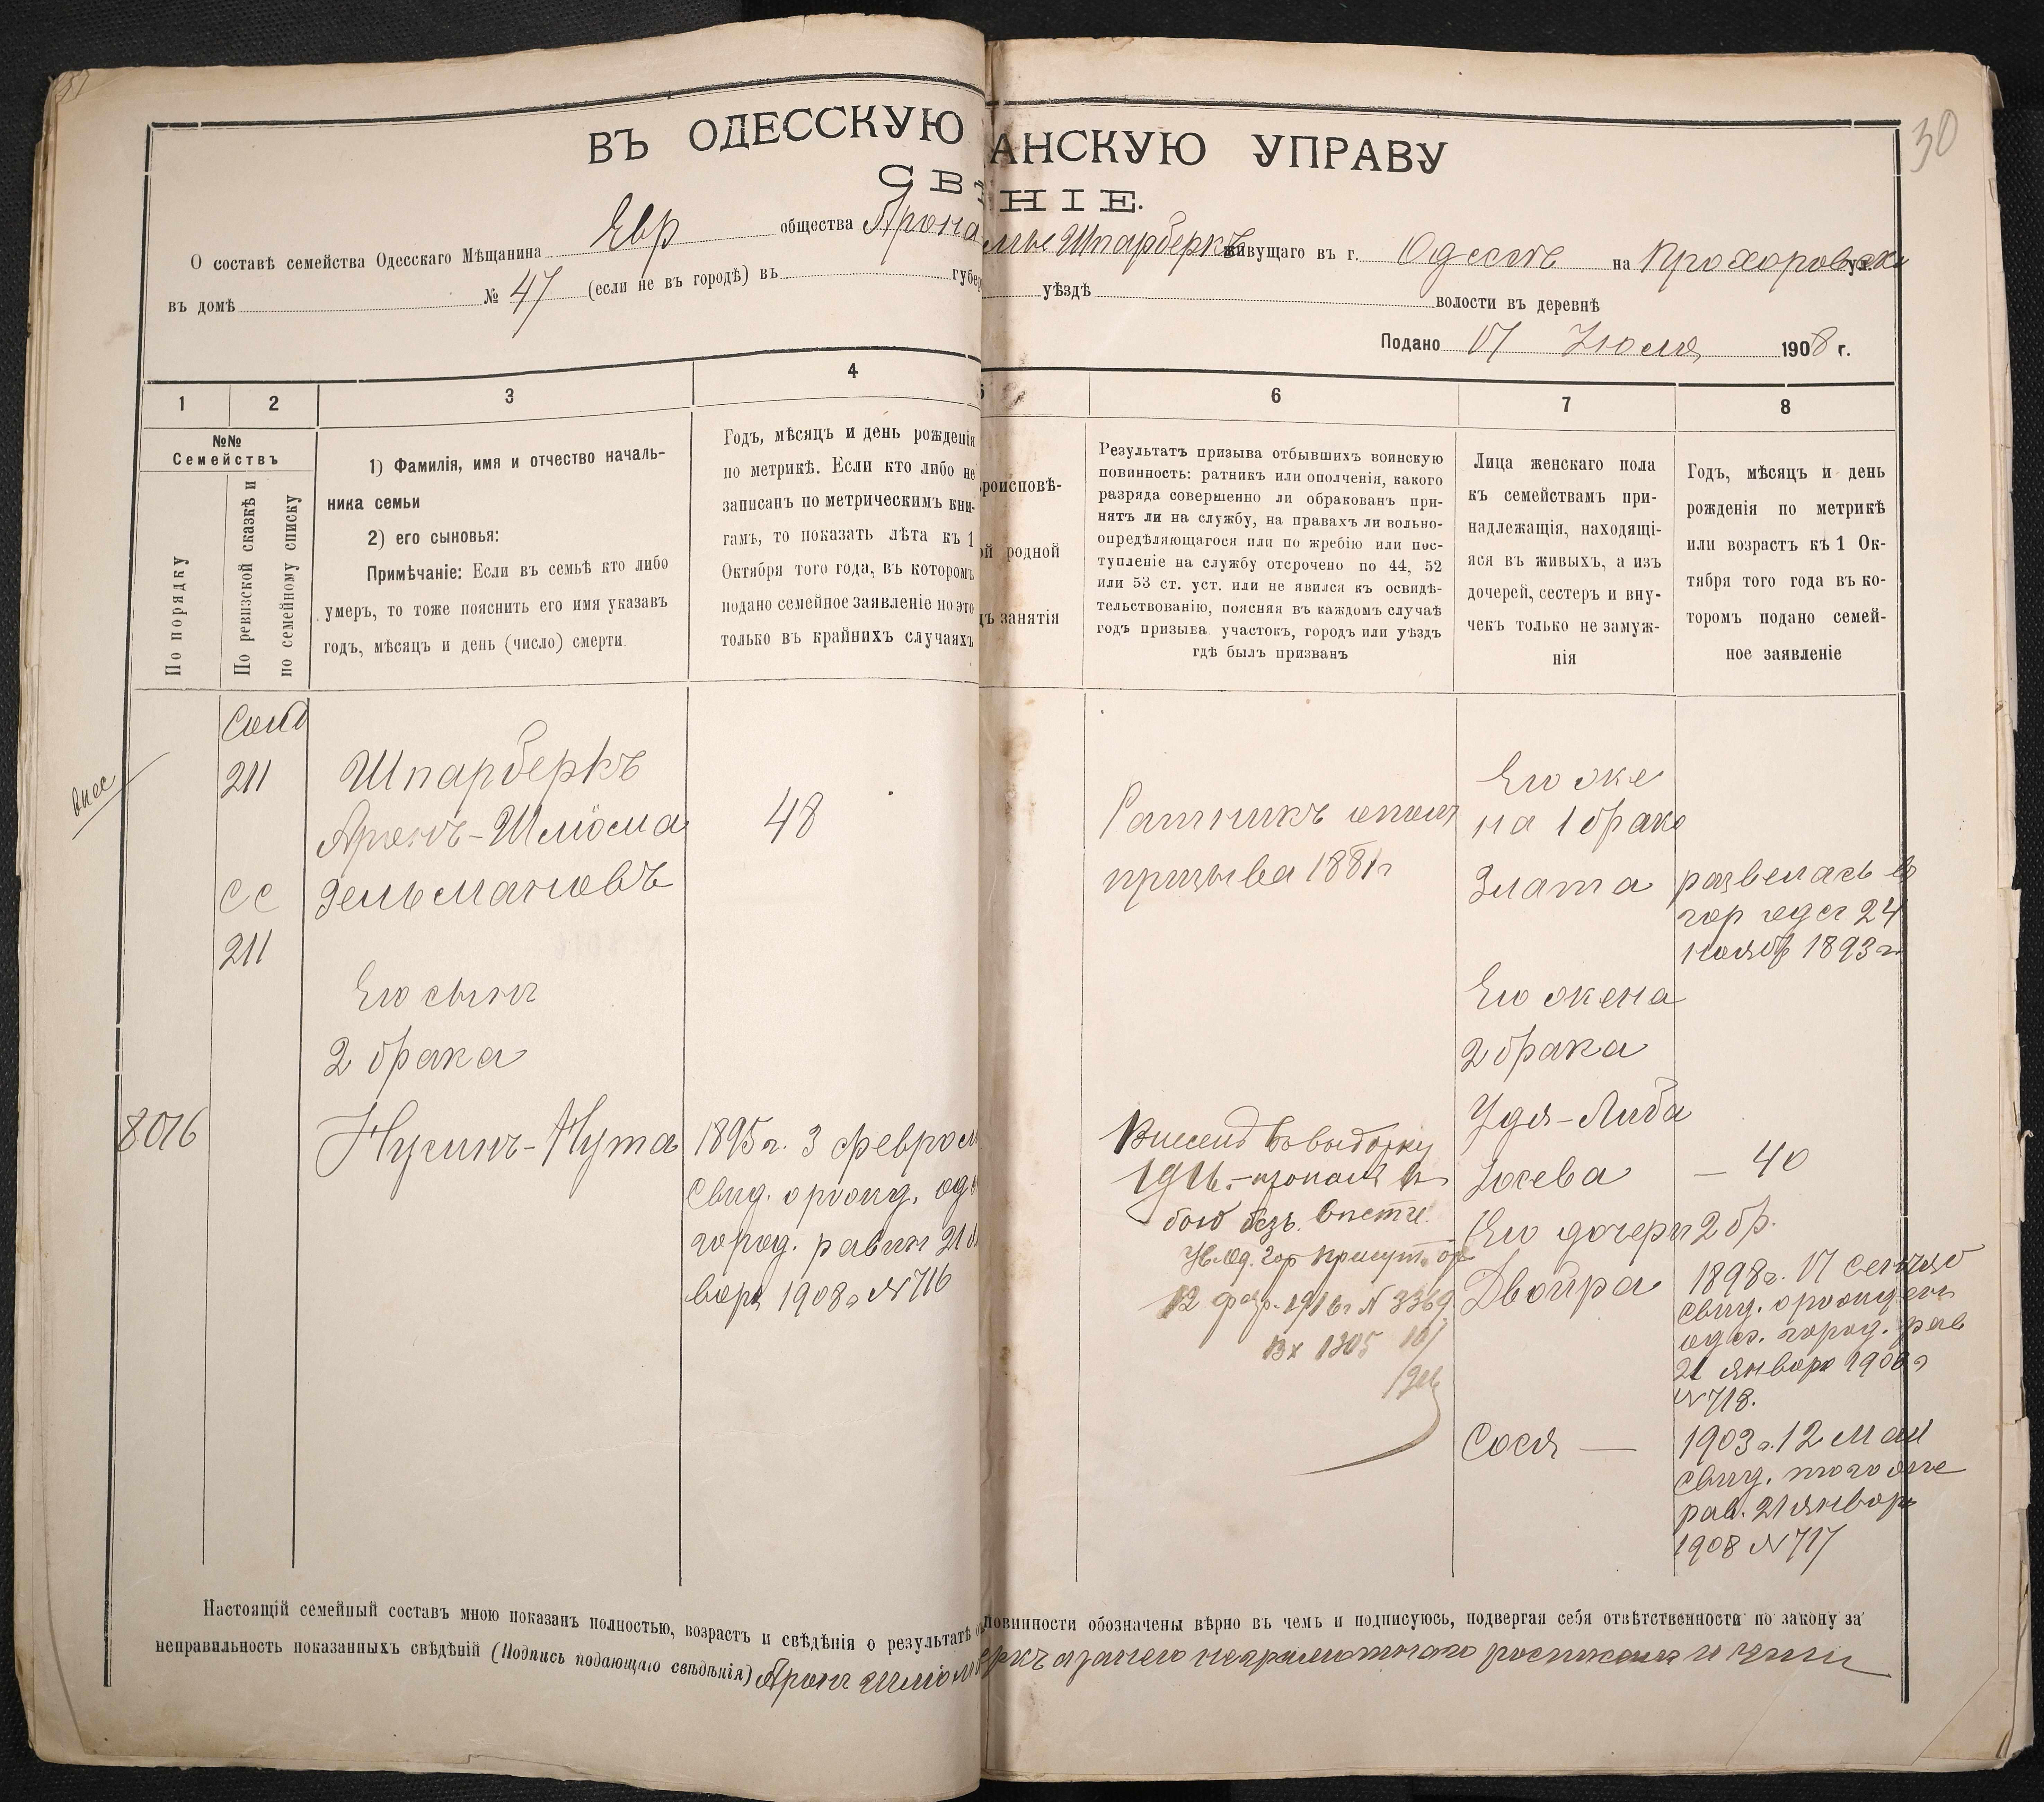 30
ВЪ ОДЕССКУЮ АНСКУЮ УПРАВУ
СВѢ НІЕ.
О составѣ семейства Одесскаго Мѣщанина Евр общества Арона Шпарберкъ живущаго въ г. Одессѣ на Прохоровск ул.
въ домѣ № 47 (если не въ городѣ) въ губер уѣздѣ волости въ деревнѣ
Подано 17 Іюля 1908 г.
1 2 3 4
6 7 8
№№
Семействъ
По порядку
По ревизской сказкѣ и
по семейному списку
1) Фамилія, имя и отчество началь-
ника семьи
2) его сыновья:
Примѣчаніе: Если въ семьѣ кто либо
умеръ, то тоже пояснить его имя указавъ
годъ, мѣсяцъ и день (число) смерти
Годъ, мѣсяцъ и день рожденія
по метрикѣ. Если кто либо не
записанъ по метрическимъ кни-
гамъ, то показать лѣта къ 1
Октября того года, въ которомъ
подано семейное заявленіе но это
только въ крайнихъ случаяхъ
роисповѣ-
ой родной
дъ занятія
Результатъ призыва отбывшихъ воинскую
повинность: ратникъ или ополченія, какого
разряда совершенно ли обракованъ при-
нятъ ли на службу, на правахъ ли вольно-
опредѣляющагося или по жребію или пос-
тупленіе на службу отсрочено по 44, 52
или 53 ст. уст. или не явился къ освидѣ-
тельствованію, поясняя въ каждомъ случаѣ
годъ призыва участокъ, городъ или уѣздъ
гдѣ былъ призванъ
Лица женскаго пола
къ семействамъ при-
надлежащія, находящі-
яся въ живыхъ, а изъ
дочерей, сестеръ и вну-
чекъ только не замуж-
нія
Годъ, мѣсяцъ и день
рожденія по метрикѣ
или возрастъ къ 1 Ок-
тября того года въ ко-
торомъ подано семей-
ное заявленіе
внес
211
Шпарберкъ
Аронъ-Шлiома
СС
Зельмановъ
211
48
Его сынъ
2 брака
8016
Нусинъ-Нута
1895 г. 3 феврал
Свид. о рожд. од
город. равин 21 я
варя 1908 г №716
Ратникъ опол
призыва 1881 г
Внесенъ въ выборку
1916.-пропалъ въ
бою безъ вѣсти.
Ув. Од. Гор Присут. от
12 фвр. 1916 г № 3369
Вх 1305
Его же
на 1 брака
Злата
развелась в
гор одес 24
ноябр 1893 г
Его жена
2 брака
Удя-Либа
Іосева — 40
Его дочери 2 бр.
Двойра
1898 г. 17 сентяб
свид. о рожден
одес. город. рав
21 января 1908 г
№ 718.
Сося —
1903 г. 12 Мая
свид. того же
рав. 21 январ
1908 № 717
Настоящій семейный составъ мною показанъ полностью, возрастъ и свѣдѣнія о результатѣ о повинности обозначены вѣрно въ чемъ и подписуюсь, подвергая себя отвѣтственности по закону за
неправильность показанныхъ свѣдѣній (Подпись подающаго свѣдѣнія) Аронъ Шліом еркъ а за него неграмотнаго росписался